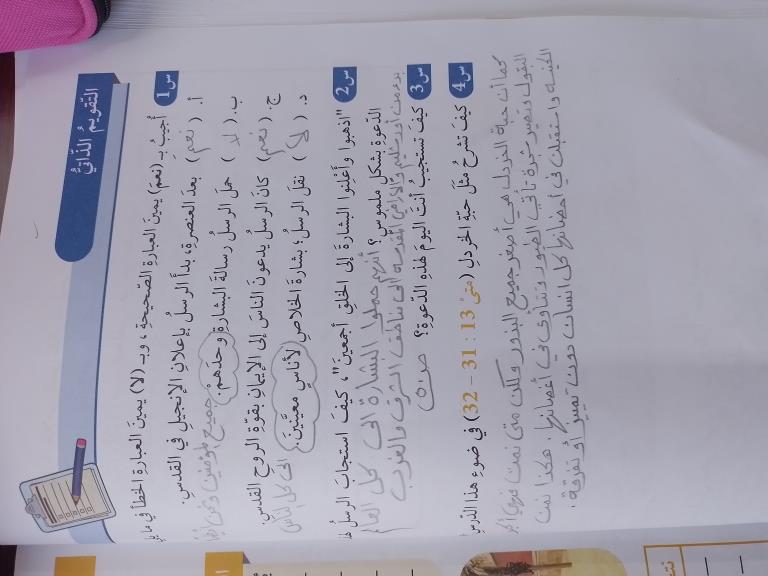 التقويم الذاتي
س1 أجيبُ بـ (نعم) يمينَ العبارةِ الصّحيحةِ، وبـ (لا) يمينَ العبارة الخطأ في ما
أ. (نعم) بعدَ العنصرة، بدأ الرسلُ بإعلانِ الإنجيلِ في القدسِ.
ب. (لا) حملَ الرسلُ رسالةَ البشارةِ وحدَهمْ. جميع المؤمنين
ج. (نعم) كانَ الرسلُ يدعونَ الناسَ إلى الإيمانِ بقوّةِ الروحِ القدسِ.
د. (لا) نقلَ الرسلُ؛ بشارةَ الخلاصِ لأناسٍ معيَّنينَ. الى كل الناس
س2 "اذهبوا وأَعْلِنوا البشارةَ إلى الخلقِ أجمعينَ"، كيفَ استجابَ الرسلُ
الدّعوةِ بشكلٍ ملموسٍ؟ أنهم حملوا البشارة الى كل العالم
بدء من أورشليم والأراضي المقدسة الى مناطق الشرق والغرب
س3 كيفَ تستجيبُ أنتَ اليومَ لهذهِ الدّعوةِ؟
س4 كيفَ تشرحُ مثلَ حبّةِ الخردلِ (متى 13 : 31 – 32) في ضوءِ هذا الدّرسِ
كما أن حبة الخردل هي أصغر جميع البذور ولكن متى نمت فهي أكبر
البقول وتصير شجرة تأتي الطيور وتتأوى في أغصانها. هكذا نمت
الكنيسة واستقبلت في أحضانها كل انسان دون تمييز أو تفرقة.